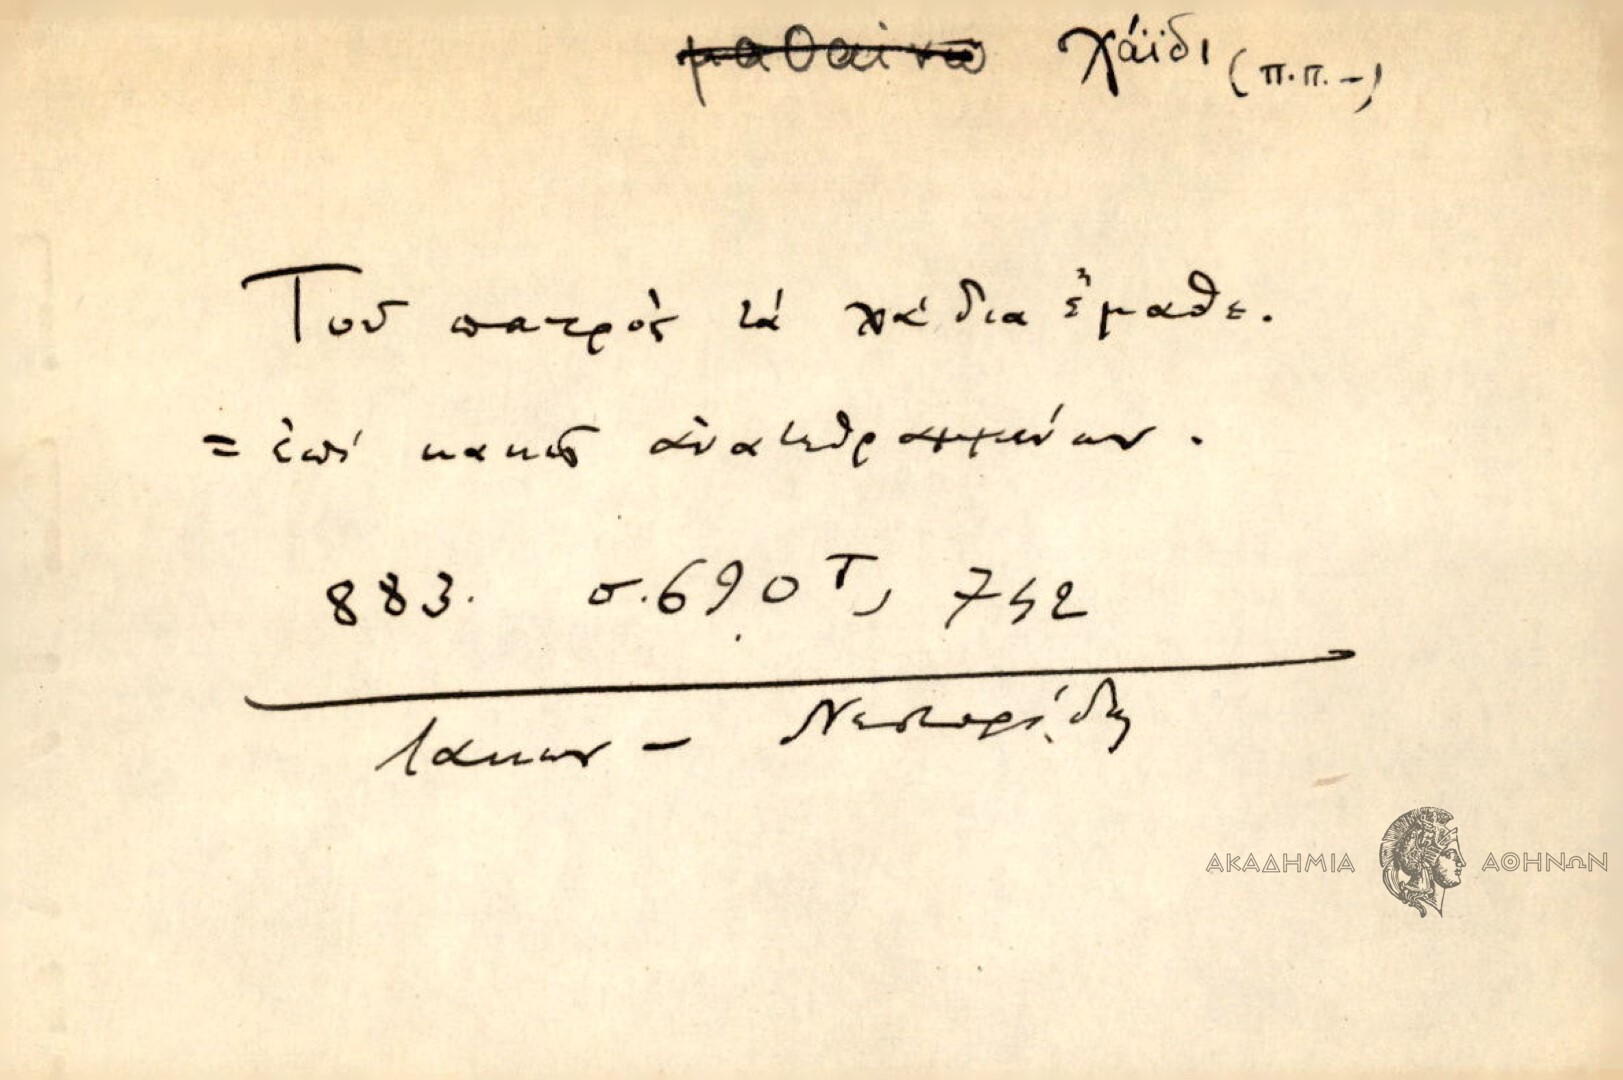 μαθαίνω χάϊδι (π.π.-)
Τοῦ πατρὸς τά χάδια ἔμαθε.
= ἐπί κακῶς ἀνατεθραμμένων.
883. σ. 690 Τ, 742
Λακων - Νεστορίδη
ΑΚΑΔΗΜΙΑ ΑΘΗΝΩΝ